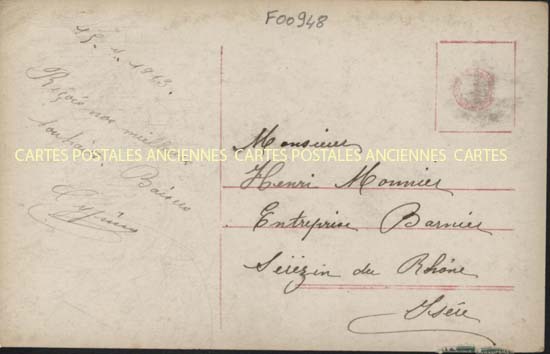 F00948
15. 1. 1913.
Reçois nos meilleurs
souhaits. Baisers
CARTES POSTALES ANCIENNES CARTES POSTALES ANCIENNES CARTES
Monsieur
Henri Monnier
Entreprise Barnier
Sérézin du Rhône
Isère